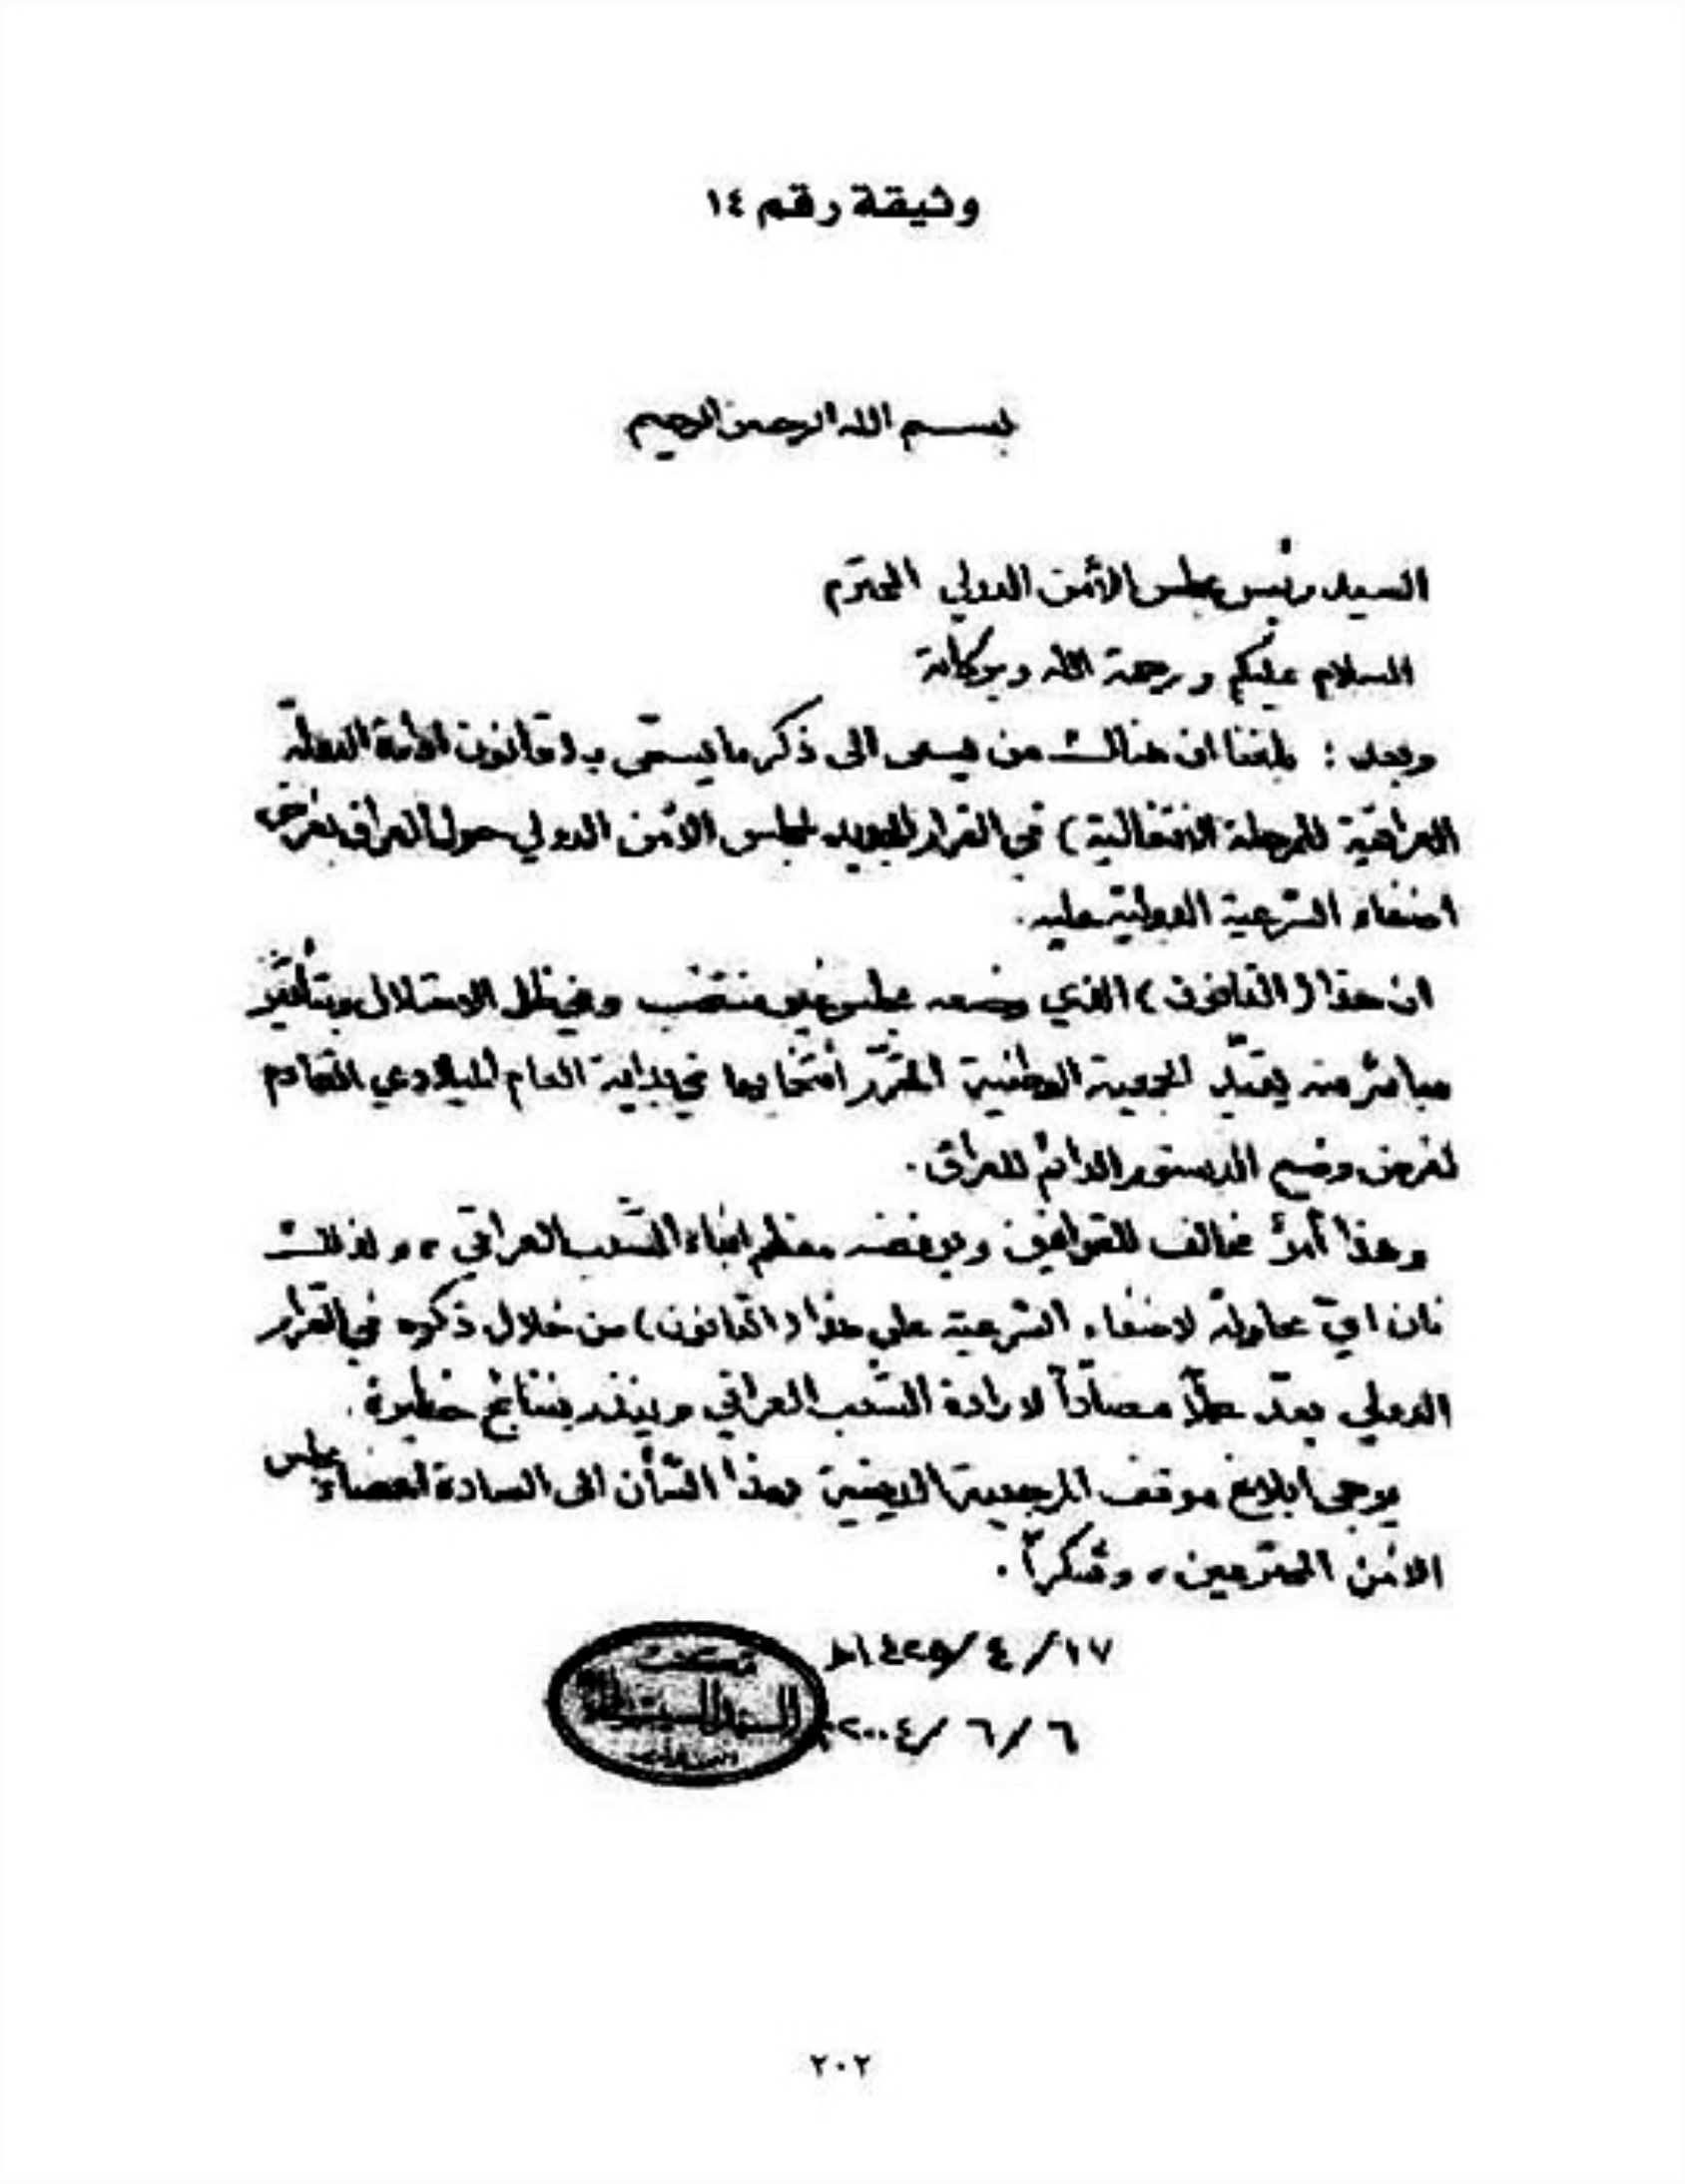 وثيقة رقم ١٤
بسم الله الرحمن الرحيم
السيد رئيس مجلس الأمن الدولي المحترم
السلام عليكم ورحمة الله وبركاته
وبعد : بلغنا ان هناك من يسعى الى ذكر ما يسمّى بـ(قانون ادارة الدولة
العراقية للمرحلة الانتقالية) في القرار الجديد لمجلس الأمن الدولي حول العراق بغرض
اضفاء الشرعية الدولية عليه.
ان هذا (القانون) الذي وضعه مجلس غير منتخب وفي ظل الاحتلال وبتأثير
مباشر منه يقيّد الجمعية الوطنية المقرّر انتخابها في بداية العام الميلادي القادم
لغرض وضع الدستور الدائم للعراق.
وهذا أمرٌ مخالف للقوانين ويرفضه معظم ابناء الشعب العراقي، ولذلك
فان ايّ محاولة لاضفاء الشرعية على هذا (القانون) من خلال ذكره في القرار
الدولي يعدّ عملاً مضادّاً لارادة الشعب العراقي وينذر بنتائج خطيرة.
يرجى ابلاغ موقف المرجعية الدينية بهذا الشأن الى السادة اعضاء مجلس
الأمن المحترمين، وشكراً.
١٧/ ٤ /١٤٢٥هـ
٦/ ٦ /٢٠٠٤م
٢٠٢